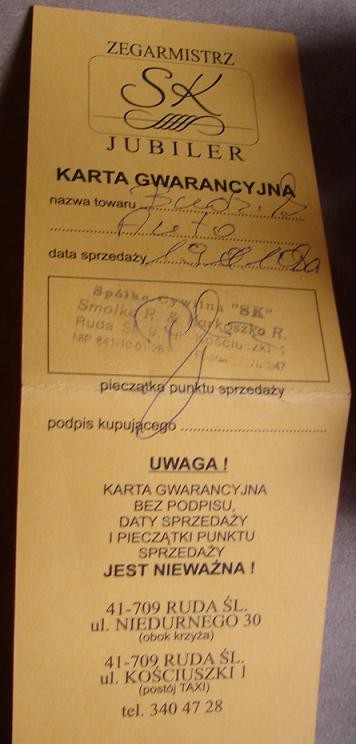 ZEGARMISTRZ
SK
JUBILER
KARTA GWARANCYJNA
nazwa towaru
data sprzedaży
Spółka Cywilna "SK"
Smołka R. & R.
Ruda Śl. 9 KOŚCIUSZKI 1
NIP 641-10-01-26
47
pieczątka punktu sprzedaży
podpis kupującego
UWAGA !
KARTA GWARANCYJNA
BEZ PODPISU,
DATY SPRZEDAŻY
I PIECZĄTKI PUNKTU
SPRZEDAŻY
JEST NIEWAŻNA !
41-709 RUDA ŚL.
ul. NIEDURNEGO 30
(obok krzyża)
41-709 RUDA ŚL.
ul. KOŚCIUSZKI 1
(postój TAXI)
tel. 340 47 28